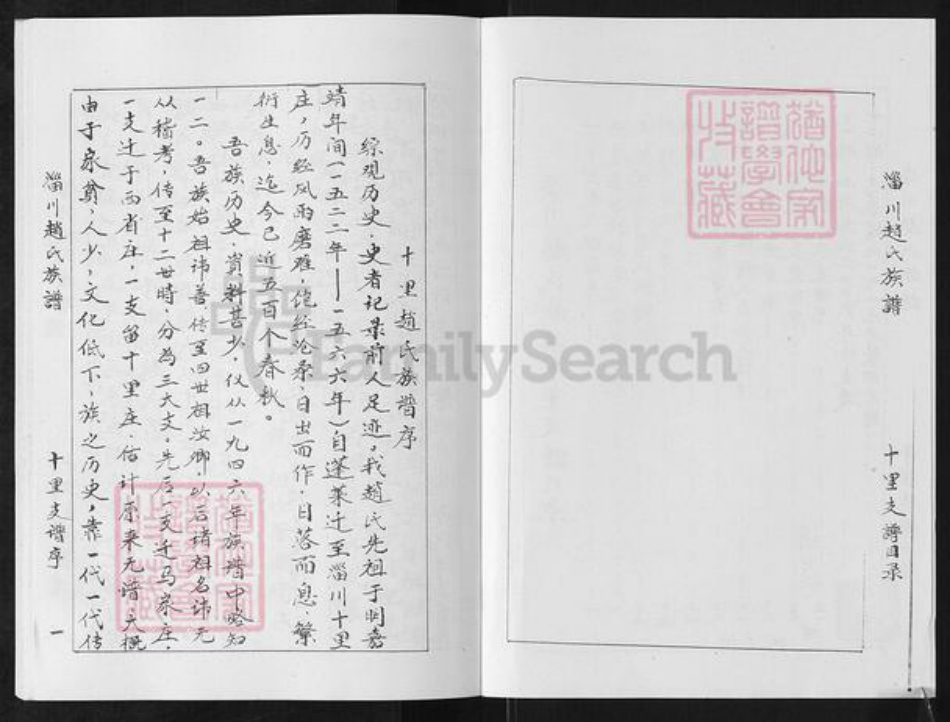 淄川趙氏族譜
十里支譜目录
十里趙氏族谱序
综观历史，史者记录前人足迹，我趙氏先祖于明嘉
靖年间（一五二二年——一五六六年）自蓬莱迁至淄川十里
庄，历经风雨磨难，饱经沧桑，日出而作，日落而息，繁
衍生息，迄今已近五百个春秋。
吾族历史，資料甚少，仅从一九四六年族谱中略知
一二。吾族始祖讳善传至四世祖汝卿，以后诸祖名讳无
从稽考，传至十二世時，分為三大支，先后一支迁马家庄，
一支迁于西省庄，一支留十里庄，估计原来无谱，大概
由于家貧，人少，文化低下，族之历史，靠一代一代传
淄川趙氏族譜
十里支谱序
一
FamilySearch